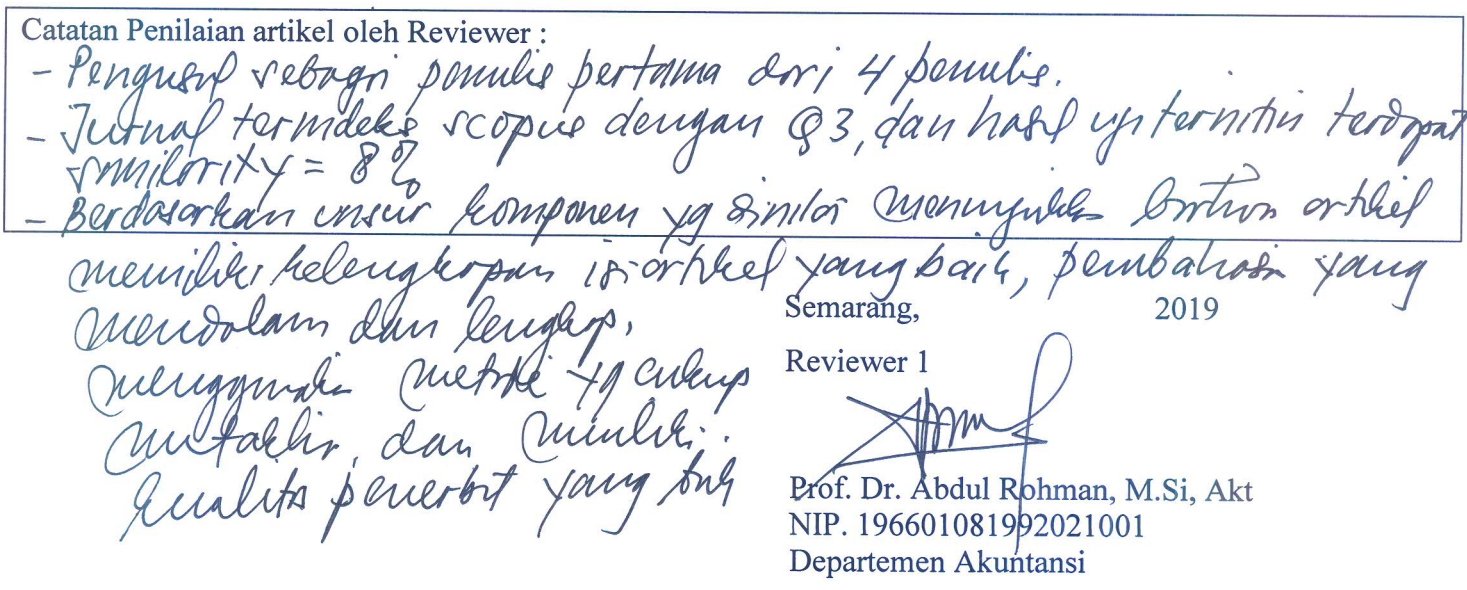 Catatan Penilaian artikel oleh Reviewer :
- Pengusul sebagai penulis pertama dari 4 penulis.
- Jurnal terindeks scopus dengan Q3, dan hasil uji turnitin terdapat
similarity = 8%
- Berdasarkan unsur komponen yg dinilai menunjukkan bahwa artikel
memiliki kelengkapan isi artikel yang baik, pembahasan yang
mendalam dan lengkap,
Semarang, 2019
menggunakan metode yg cukup
Reviewer 1
mutakhir, dan memiliki
kualitas penerbit yang baik
Prof. Dr. Abdul Rohman, M.Si, Akt
NIP. 196601081992021001
Departemen Akuntansi